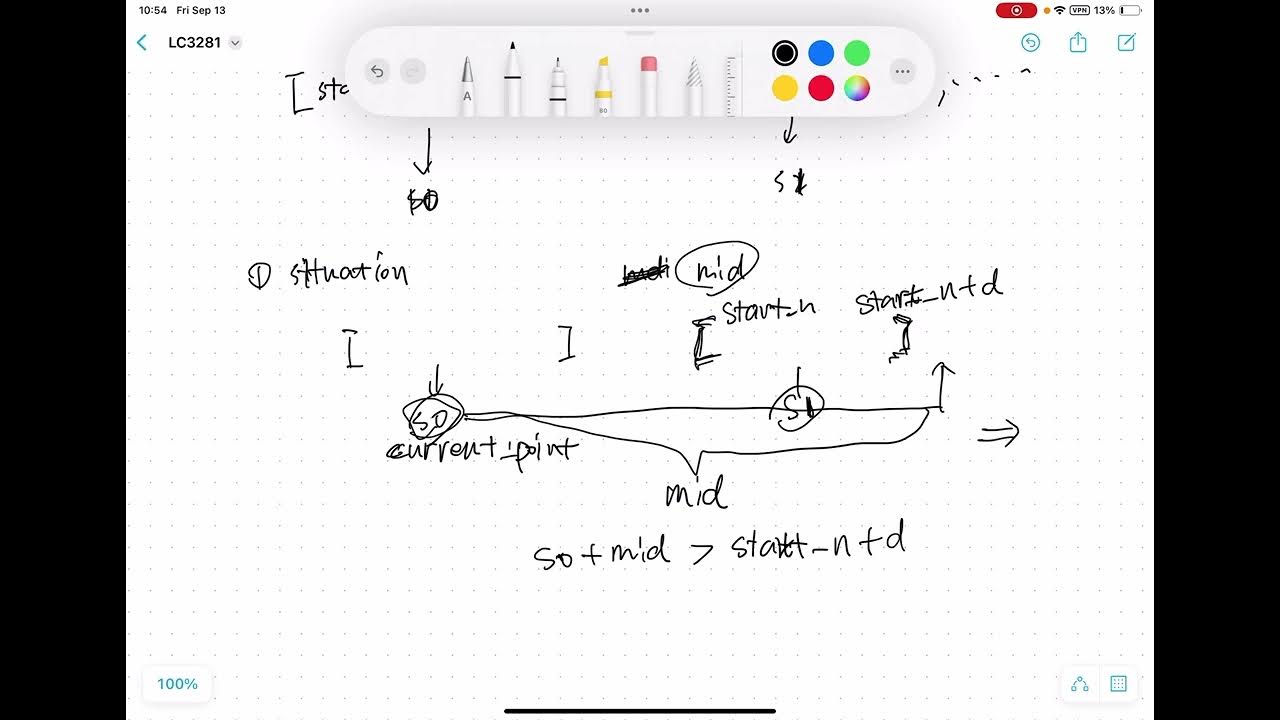 10:54 Fri Sep 13
VPN 13%
LC3281
A
80
[ sta
, .....
s0
s1
① situation
mid
start_n
start_n+d
[ ] [ ]
s0
s1
current_point
⇒
mid
s0 + mid > start_n+d
100%